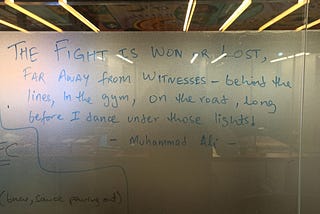 THE FIGHT IS WON OR LOST,
FAR AWAY FROM WITNESSES - behind the
lines, in the gym, on the road, long
before I dance under those lights!
- Muhammad Ali -
EC